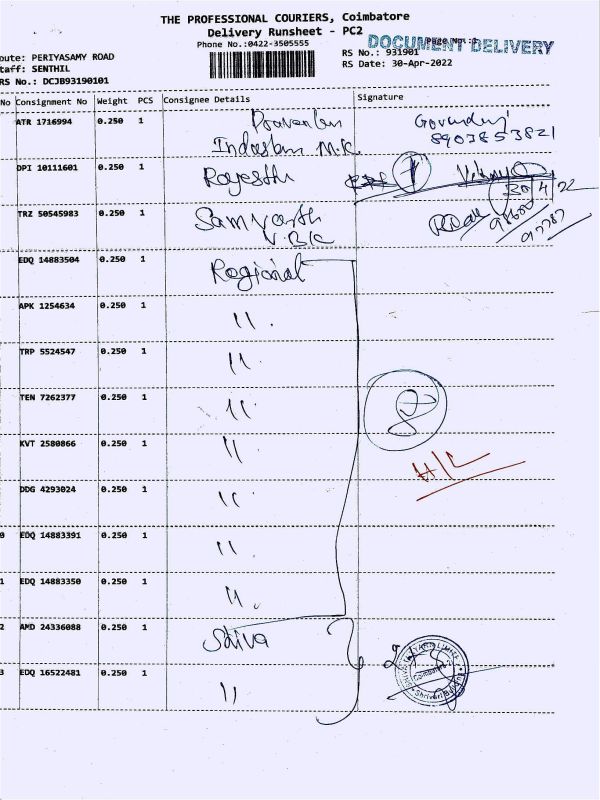 THE PROFESSIONAL COURIERS, Coimbatore
Delivery Runsheet - PC2
Phone No.:0422-3505555
DOCUMENT DELIVERY
Page No.:1
oute: PERIYASAMY ROAD
RS No.: 931901
taff: SENTHIL
RS Date: 30-Apr-2022
RS No.: DCJB93190101
No Consignment No Weight PCS Consignee Details Signature
ATR 1716994 0.250 1
8903853821
DPI 10111601 0.250 1
30/4/22
TRZ 50545983 0.250 1
EDQ 14883504 0.250 1 Regional
APK 1254634 0.250 1 "
TRP 5524547 0.250 1 "
TEN 7262377 0.250 1 "
8
KVT 2580866 0.250 1 "
H/L
DDG 4293024 0.250 1 "
0 EDQ 14883391 0.250 1 "
1 EDQ 14883350 0.250 1 "
2 AMD 24336088 0.250 1
3 EDQ 16522481 0.250 1 "